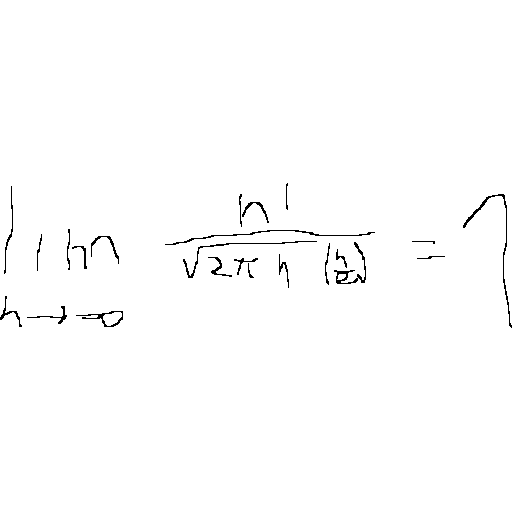 lim n! / (√(2πn) (n/e)) = 1
n→∞